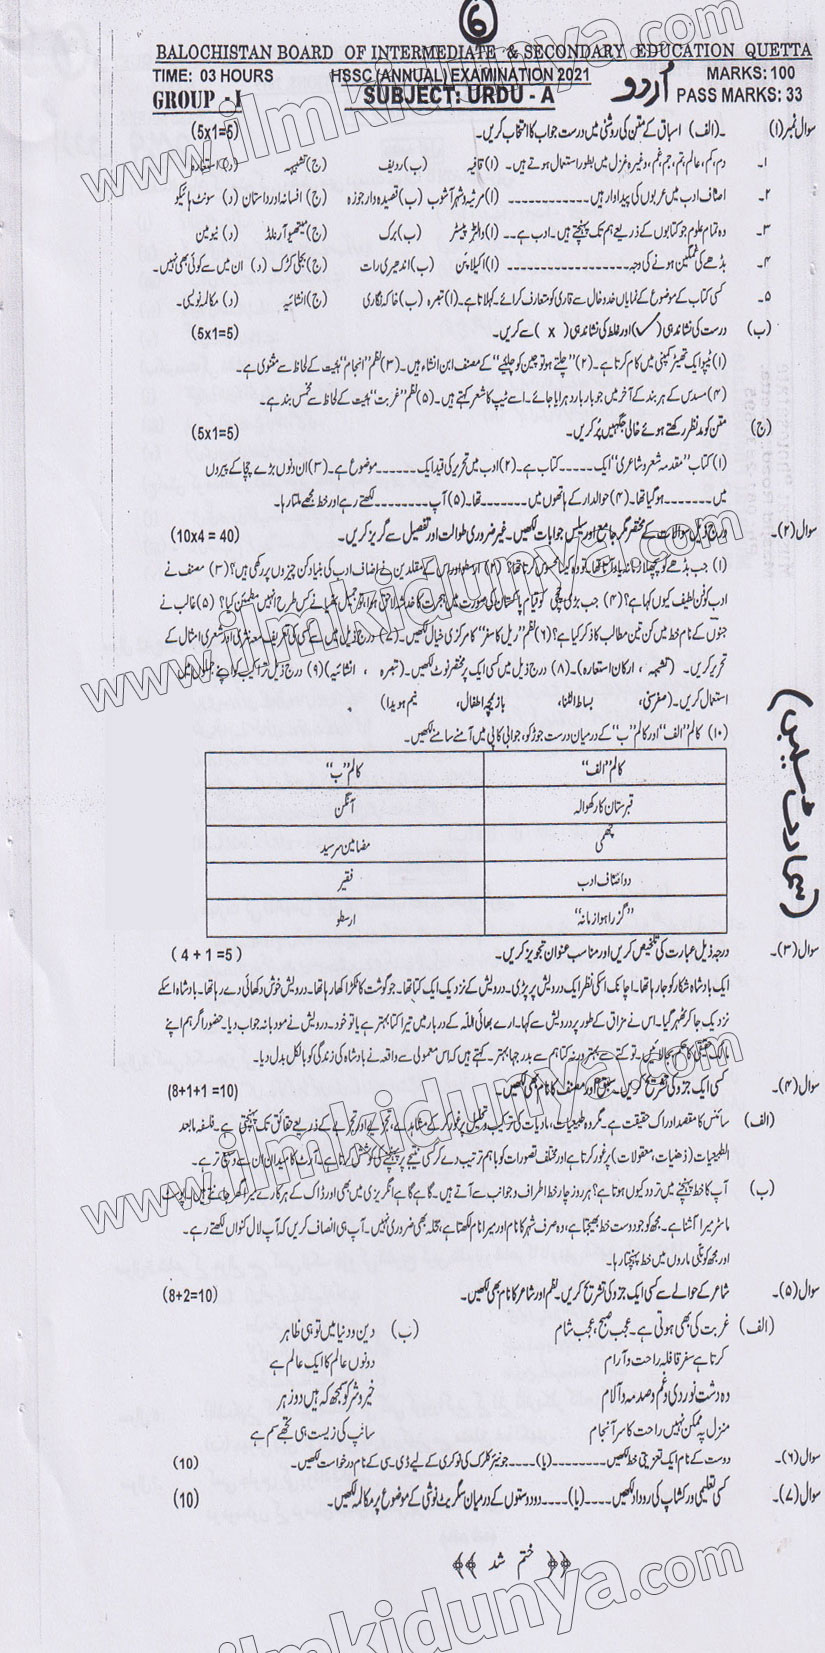 6
BALOCHISTAN BOARD OF INTERMEDIATE & SECONDARY EDUCATION QUETTA
TIME: 03 HOURS HSSC (ANNUAL) EXAMINATION 2021 MARKS: 100
GROUP - I SUBJECT: URDU - A اُردو PASS MARKS: 33
سوال نمبر(۱) ۔(الف) اسباق کے متن کی روشنی میں درست جواب کا انتخاب کریں۔ (5x1=5)
۱۔ دم، کم، عالم، تم، جم، غم، وغیرہ غزل میں بطور استعمال ہوتے ہیں۔ (ا) قافیہ (ب) ردیف (ج) تشبیہہ (د) استعارہ
۲۔ اصناف ادب میں عربوں کی پیداوار ہیں۔۔۔۔۔۔۔۔۔۔۔۔ (ا) مرثیہ و شہر آشوب (ب) قصیدہ دار جوزہ (ج) افسانہ اور داستان (د) سونٹ ہائیکو
۳۔ وہ تمام علوم جو کتابوں کے ذریعے ہم تک پہنچتے ہیں۔ ادب ہے۔۔ (ا) والٹر پیٹر (ب) برک (ج) میتھیو آرنلڈ (د) نیومین
۴۔ بڈھے کی غمگین ہونے کی وجہ۔۔۔۔۔۔۔۔۔۔۔۔ (ا) اکیلا پن (ب) اندھیری رات (ج) بجلی کڑک (د) ان میں سے کوئی بھی نہیں۔
۵۔ کسی کتاب کے موضوع کے نمایاں خدوخال سے قاری کو متعارف کرائے۔ کہلاتا ہے۔ (ا) تبصرہ (ب) خاکہ نگاری (ج) انشائیہ (د) مکالمہ نویسی۔
(ب) درست کی نشاندہی (✓) اور غلط کی نشاندہی (x) سے کریں۔ (5x1=5)
(۱) ٹیپو ایک تھیٹر کمپنی میں کام کرتا ہے۔ (۲) "چلتے ہو تو چین کو چلیئے" کے مصنف ابن انشاء ہیں۔ (۳) نظم "انجام" ہیئیت کے لحاظ سے مثنوی ہے۔
(۴) مسدس کے ہر بند کے آخر میں جو بار بار دہرایا جائے۔ اسے ٹیپ کا شعر کہتے ہیں۔ (۵) نظم "غربت" ہیئیت کے لحاظ سے مخمس بند ہے۔
(ج) متن کو مد نظر رکھتے ہوئے خالی جگہیں پُر کریں۔ (5x1=5)
(۱) کتاب "مقدمہ شعر و شاعری" ایک۔۔۔۔۔کتاب ہے۔ (۲) ادب میں تحریر کی قید ایک۔۔۔۔۔۔موضوع ہے۔ (۳) ان دنوں بڑے چچا کے پیروں
میں۔۔۔۔۔۔۔ہو گیا تھا۔ (۴) حوالدار کے ہاتھوں میں۔۔۔۔۔۔۔تھا۔ (۵) آپ۔۔۔۔۔۔۔لکھتے رہے اور خط مجھے ملتا رہا۔
سوال(۲)۔ درج ذیل سوالات کے مختصر مگر جامع اور سلیس جوابات لکھیں۔ غیر ضروری طوالت اور تفصیل سے گریز کریں۔ (10x4 = 40)
(۱) جب بڈھے کو پچھلا زمانہ یاد آتا تھا تو وہ کیا محسوس کرتا تھا؟ (۲) ارسطو اور اس کے مقلدین نے اصناف ادب کی بنیاد کن چیزوں پر رکھی ہیں؟ (۳) مصنف نے
ادب کو فن لطیف کیوں کہا ہے؟ (۴) جب بڑی چچی کو قیام پاکستان کی صورت میں ہجرت کا خدشہ لاحق ہوا، تو جمیل بھیا نے کس طرح انہیں مطمئن کیا؟ (۵) غالب نے
جنوں کے نام خط میں کن تین مطالب کا ذکر کیا ہے؟ (۶) نظم "ریل کا سفر" کا مرکزی خیال لکھیں۔ (۷) درج ذیل میں سے کسی کی تعریف مع نثری اور شعری امثال کے
تحریر کریں۔ (تشبیہہ ، ارکان استعارہ)۔ (۸) درج ذیل میں کسی ایک پر مختصر نوٹ لکھیں۔ (تبصرہ ، انشائیہ) (۹) درج ذیل تراکیب کو اپنے جملوں میں
استعمال کریں۔ (صغر سنی، بساط الٹنا، بازیچہ اطفال، نیم ہویدا)
(۱۰) کالم "الف" اور کالم "ب" کے درمیان درست جوڑ کو، جوابی کاپی میں آمنے سامنے لکھیں۔
کالم "الف" کالم "ب"
قبرستان کا رکھوالہ آنگن
چھمی مضامین سرسید
دو اصناف ادب فقیر
"گزرا ہوا زمانہ" ارسطو
(سمارٹ سلیبس)
سوال(۳)۔ درجہ ذیل عبارت کی تلخیص کریں اور مناسب عنوان تجویز کریں۔ (4+1=5)
ایک بادشاہ شکار کو جا رہا تھا۔ اچانک اسکی نظر ایک درویش پر پڑی۔ درویش کے نزدیک ایک کتا تھا۔ جو گوشت کا ٹکڑا کھا رہا تھا۔ درویش خوش دکھائی دے رہا تھا۔ بادشاہ اسکے
نزدیک جا کر ٹھہر گیا۔ اس نے مزاق کے طور پر درویش سے کہا۔ ارے بھائی اللہ کے دربار میں تیرا کتا بہتر ہے یا تو خود۔ درویش نے مودبانہ جواب دیا۔ حضور اگر ہم اپنے
مالک حقیقی کا حکم بجا لائیں۔ تو کتے سے بہتر ورنہ کتا ہم سے بدرجہا بہتر۔ کہتے ہیں کہ اس معمولی سے واقعہ نے بادشاہ کی زندگی کو بالکل بدل دیا۔
سوال(۴)۔ کسی ایک جزو کی تشریح کریں۔ سبق اور مصنف کا نام بھی لکھیں۔ (8+1+1 =10)
(الف) سائنس کا مقصد ادراک حقیقت ہے۔ مگر وہ طبیعیات، مادیات کی ترکیب و تحلیل پر غور کر کے مشاہدے، تجزیے اور تجربے کے ذریعے حقائق تک پہنچتی ہے۔ فلسفہ مابعد
الطبیعیات (ذہنیات، معقولات) پر غور کرتا ہے اور مختلف تصورات کو باہم ترتیب دے کر کسی نتیجے پر پہنچنے کی کوشش کرتا ہے۔ آرٹ کا میدان ان سے وسیع تر ہے۔
(ب) آپ کا خط پہنچنے میں تردد کیوں ہوتا ہے؟ ہر روز چار خط اطراف و جوانب سے آتے ہیں۔ گاہے گاہے انگریزی میں بھی اور ڈاک کے ہرکارے میرا گھر جانتے ہیں۔ پوسٹ
ماسٹر میرا آشنا ہے۔ مجھ کو جو دوست خط بھیجتا ہے، وہ صرف شہر کا نام اور میرا نام لکھتا ہے، محلہ بھی ضروری نہیں۔ آپ ہی انصاف کریں کہ آپ لال کنواں لکھتے رہے۔
اور مجھ کو بلی ماروں میں خط پہنچتا رہا۔
سوال(۵)۔ شاعر کے حوالے سے کسی ایک جزو کی تشریح کریں۔ نظم اور شاعر کا نام بھی لکھیں۔ (8+2=10)
(الف) غربت کی بھی ہوتی ہے۔ عجب صبح، عجب شام (ب) دین و دنیا میں تو ہی ظاہر
کرتا ہے سفر قافلہ راحت و آرام دونوں عالم کا ایک عالم ہے
وہ دشت نوردی و غم و صدمہ و آلام خیر و شر کو سمجھ کہ ہیں دو زہر
منزل پہ ممکن نہیں راحت کا سر انجام سانپ کی زیست ہی تجھے سم ہے
سوال(۶)۔ دوست کے نام ایک تعزیتی خط لکھیں۔۔۔۔۔۔۔۔(یا)۔۔۔۔۔جونیئر کلرک کی نوکری کے لیے ڈی۔سی کے نام درخواست لکھیں۔ (10)
سوال(۷)۔ کسی تعلیمی ورکشاپ کی روداد لکھیں۔۔۔۔(یا)۔۔۔۔دو دوستوں کے درمیان سگریٹ نوشی کے موضوع پر مکالمہ لکھیں۔ (10)
ختم شد
www.ilmkidunya.com
www.ilmkidunya.com
www.ilmkidunya.com
www.ilmkidunya.com